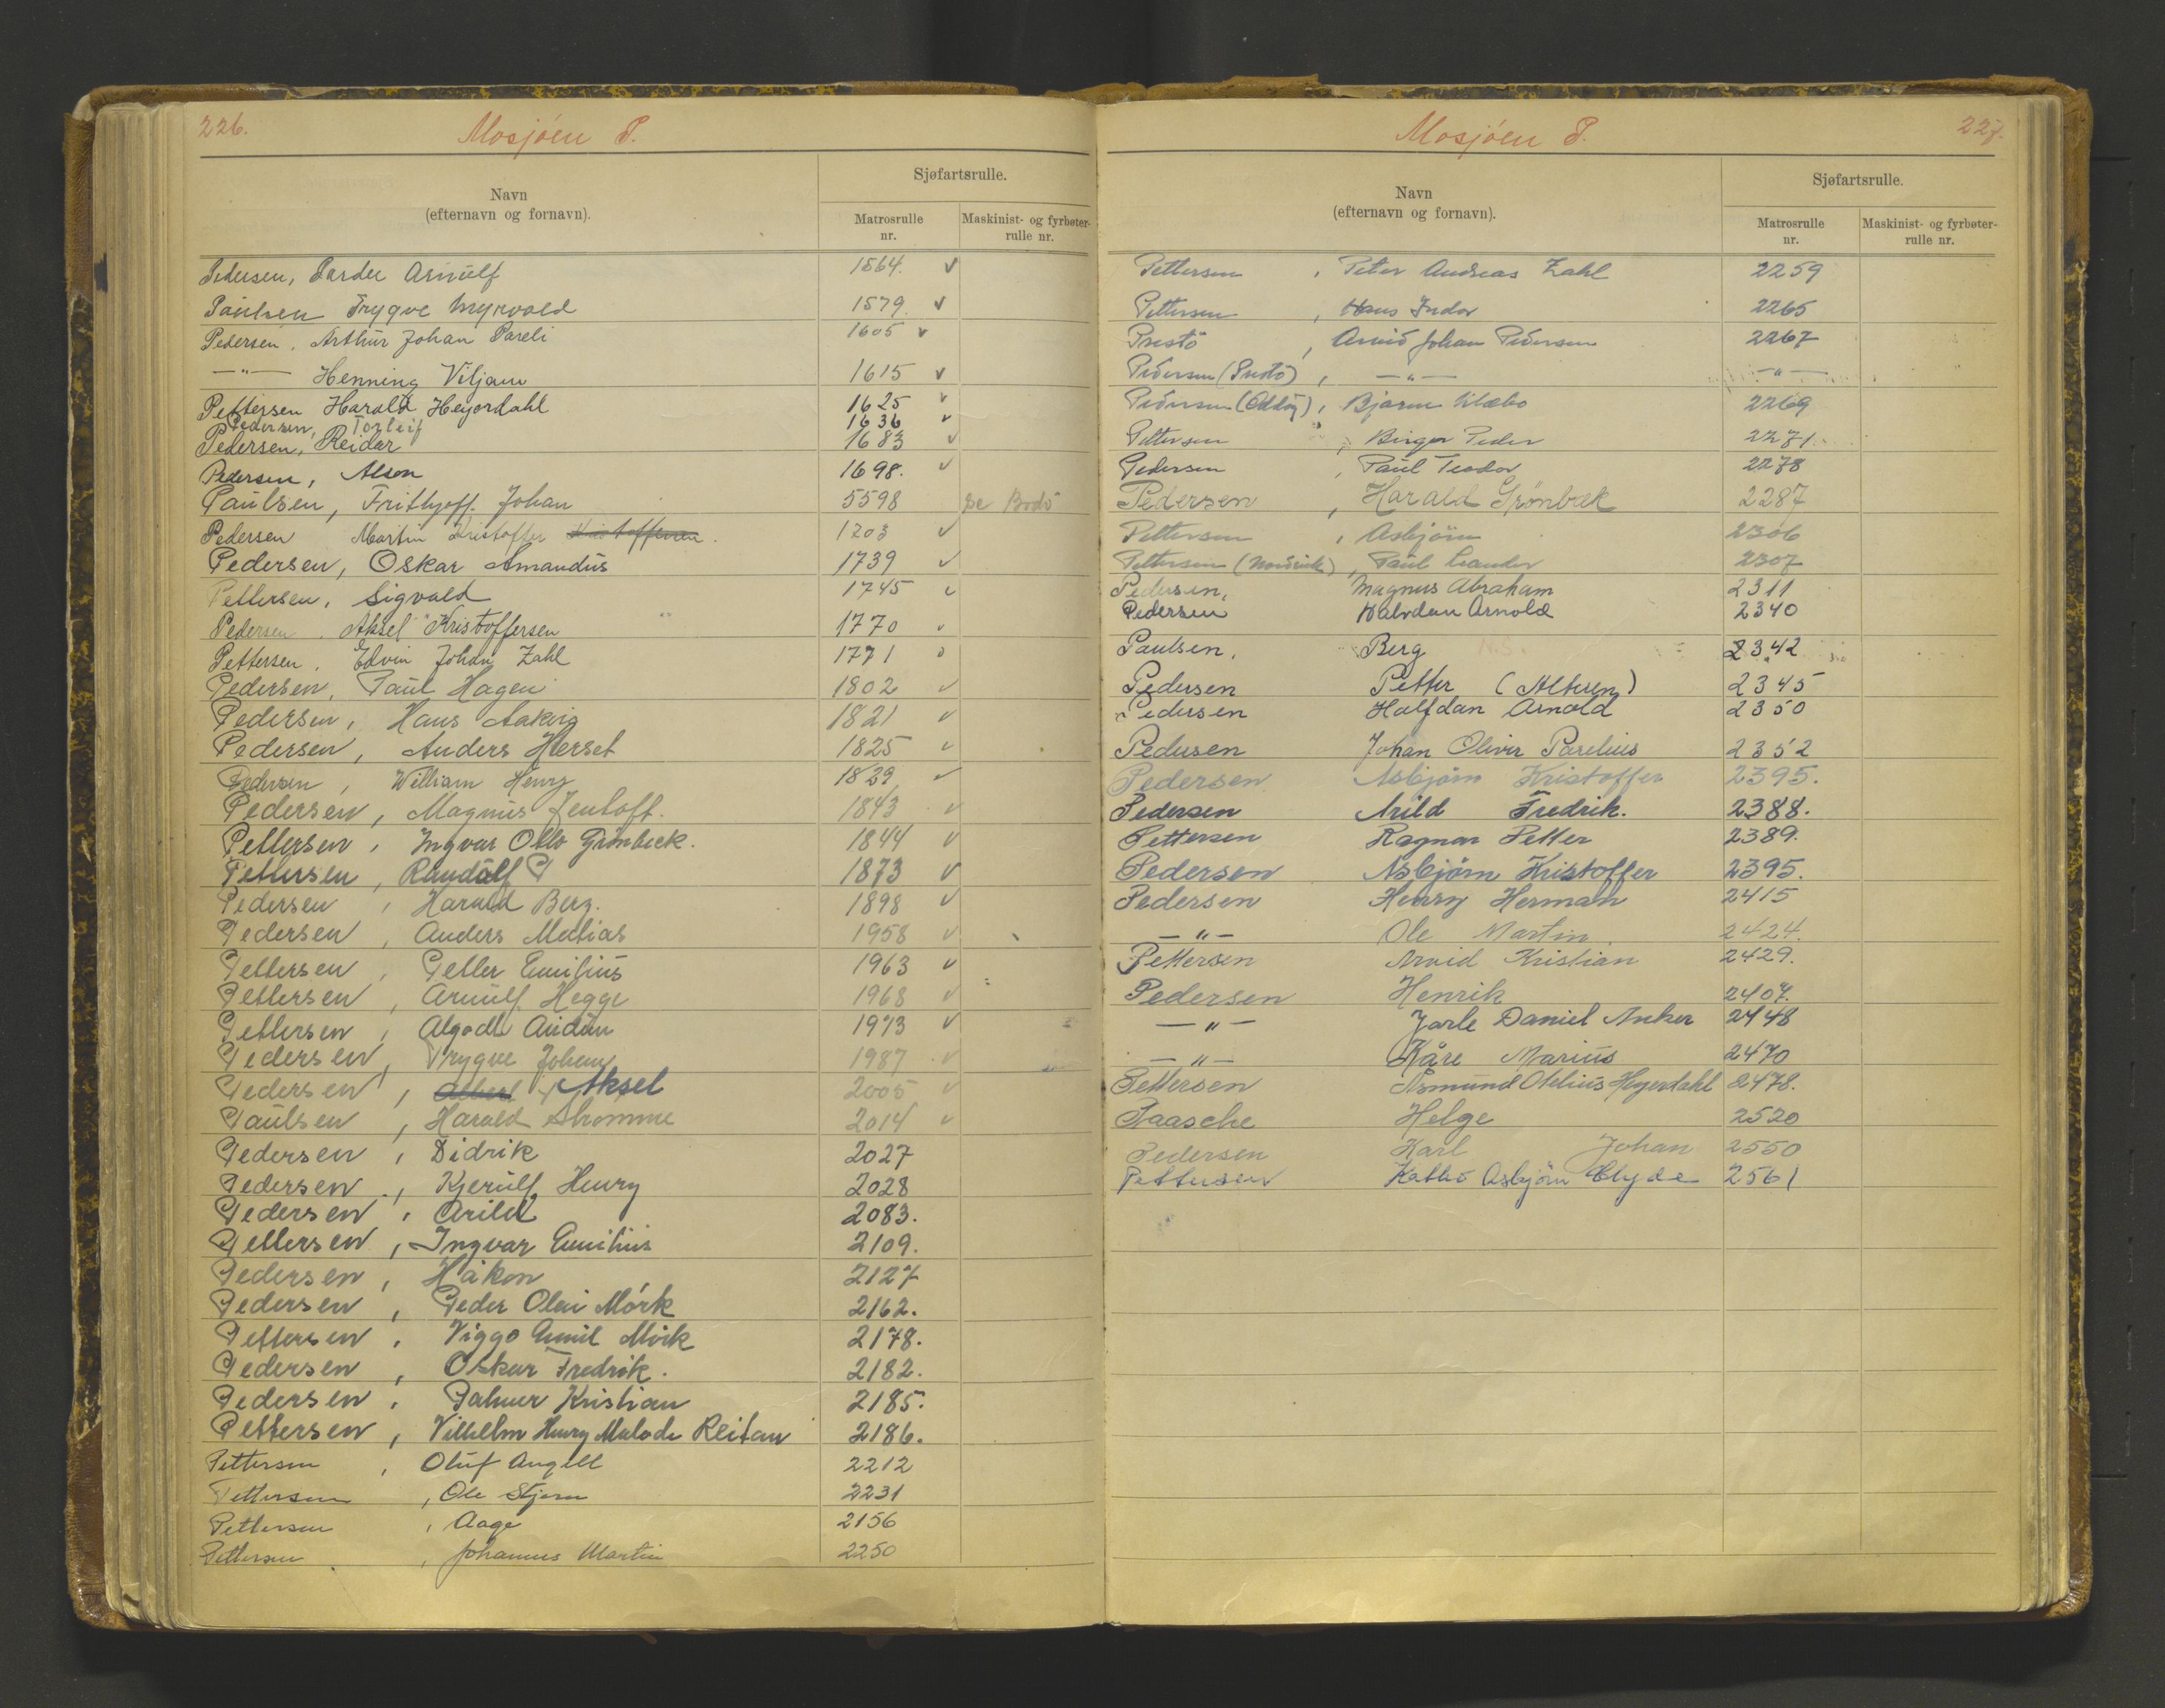 226.
Mosjöen P.
Navn
(efternavn og fornavn).
Sjøfartsrulle.
Matrosrulle nr.
Maskinist- og fyrbøter-rulle nr.
Pedersen, Parder Arnulf 1564. ✓
Paulsen Trygve Myrvold 1579 ✓
Pedersen, Arthur Johan Pareli 1605 ✓
—"— Henning Viljam 1615 ✓
Pettersen Harald Heyerdahl 1625 ✓
Pedersen, Torleif 1636 ✓
Pedersen, Reidar 1683 ✓
Pedersen, Alson 1698. ✓
Paulsen, Frithjoff. Johan 5598 se Bodö
Pedersen Martin Kristoffer Kristoffersen. 1703 ✓
Pedersen, Oskar Amandus 1739 ✓
Pettersen, Sigvald 1745 ✓
Pedersen, Aksel Kristoffersen 1770 ✓
Pettersen, Edvin Johan Zahl 1771
Pedersen, Paul Hagen 1802 ✓
Pedersen, Hans Aakvig 1821 ✓
Pedersen, Anders Herset 1825 ✓
Pedersen, William Henry 1829 ✓
Pedersen, Magnus Jentoft. 1843 ✓
Pettersen, Ingvar Otto Grönbeck. 1844 ✓
Pettersen, Randulf P 1873 ✓
Pedersen, Harald Berg. 1898 ✓
Pedersen, Anders Matias 1958 ✓
Pettersen, Petter Emilius 1963 ✓
Pettersen, Arnulf Hegge 1968 ✓
Pettersen, Algodt Audun 1973 ✓
Pedersen, Trygve Johan 1987 ✓
Pedersen, Albert Aksel 2005 ✓
Paulsen, Harald Stromme 2014 ✓
Pedersen, Didrik 2027
Pedersen, Kjerulf Henry 2028
Pedersen, Arild 2083.
Pettersen, Ingvar Emilius 2109.
Pedersen, Håkon 2127
Pedersen, Peder Olai Mörk 2162.
Pettersen, Viggo Emil Mörk 2178.
Pedersen, Oskar Fredrik. 2182.
Pedersen, Palmer Kristian 2185.
Pettersen, Vilhelm Henry Reitan 2186.
Pettersen, Oluf Angell 2212
Pettersen, Ole Stjern 2231
Pettersen, Aage 2156
Pettersen, Johannes Martin 2250
Mosjöen P.
227.
Navn
(efternavn og fornavn).
Sjøfartsrulle.
Matrosrulle nr.
Maskinist- og fyrbøter-rulle nr.
Pettersen, Peter Andreas Zahl 2259
Pettersen, Hans Indor 2265
Prestö, Arvid Johan Pedersen 2267
Pedersen (Prestö), —"— —"—
Pedersen (Oddöy), Bjarne 2269
Pettersen, Birger Peder 2271
Pedersen, Paul Teodor 2278
Pedersen, Harald Grönbæk 2287
Pettersen, Asbjörn 2306
Pettersen (Nordvik), Paul Leander 2307
Pedersen, Magnus Abraham 2311
Pedersen Halvdan Arnold 2340
Paulsen, Berg N.S. 2342
Pedersen Petter (Altersen) 2345
Pedersen Halfdan Arnold 2350
Pedersen Johan Oliver Parelius 2352
Pedersen Asbjörn Kristoffer 2395.
Pedersen Arild Fredrik. 2388.
Pettersen Ragnar Petter 2389.
Pedersen Asbjörn Kristoffer 2395.
Pedersen Henry Herman 2415
—"— Ole Martin. 2424.
Pettersen Arvid Kristian 2429.
Pedersen Henrik 2407.
—"— Jarle Daniel Anker 2448
—"— Kåre Marius 2470
Pettersen Asmund Otelius Heyerdahl 2478.
Paasche Helge 2520
Pedersen Karl Johan 2550
Pettersen Asbjörn Clyde 2561